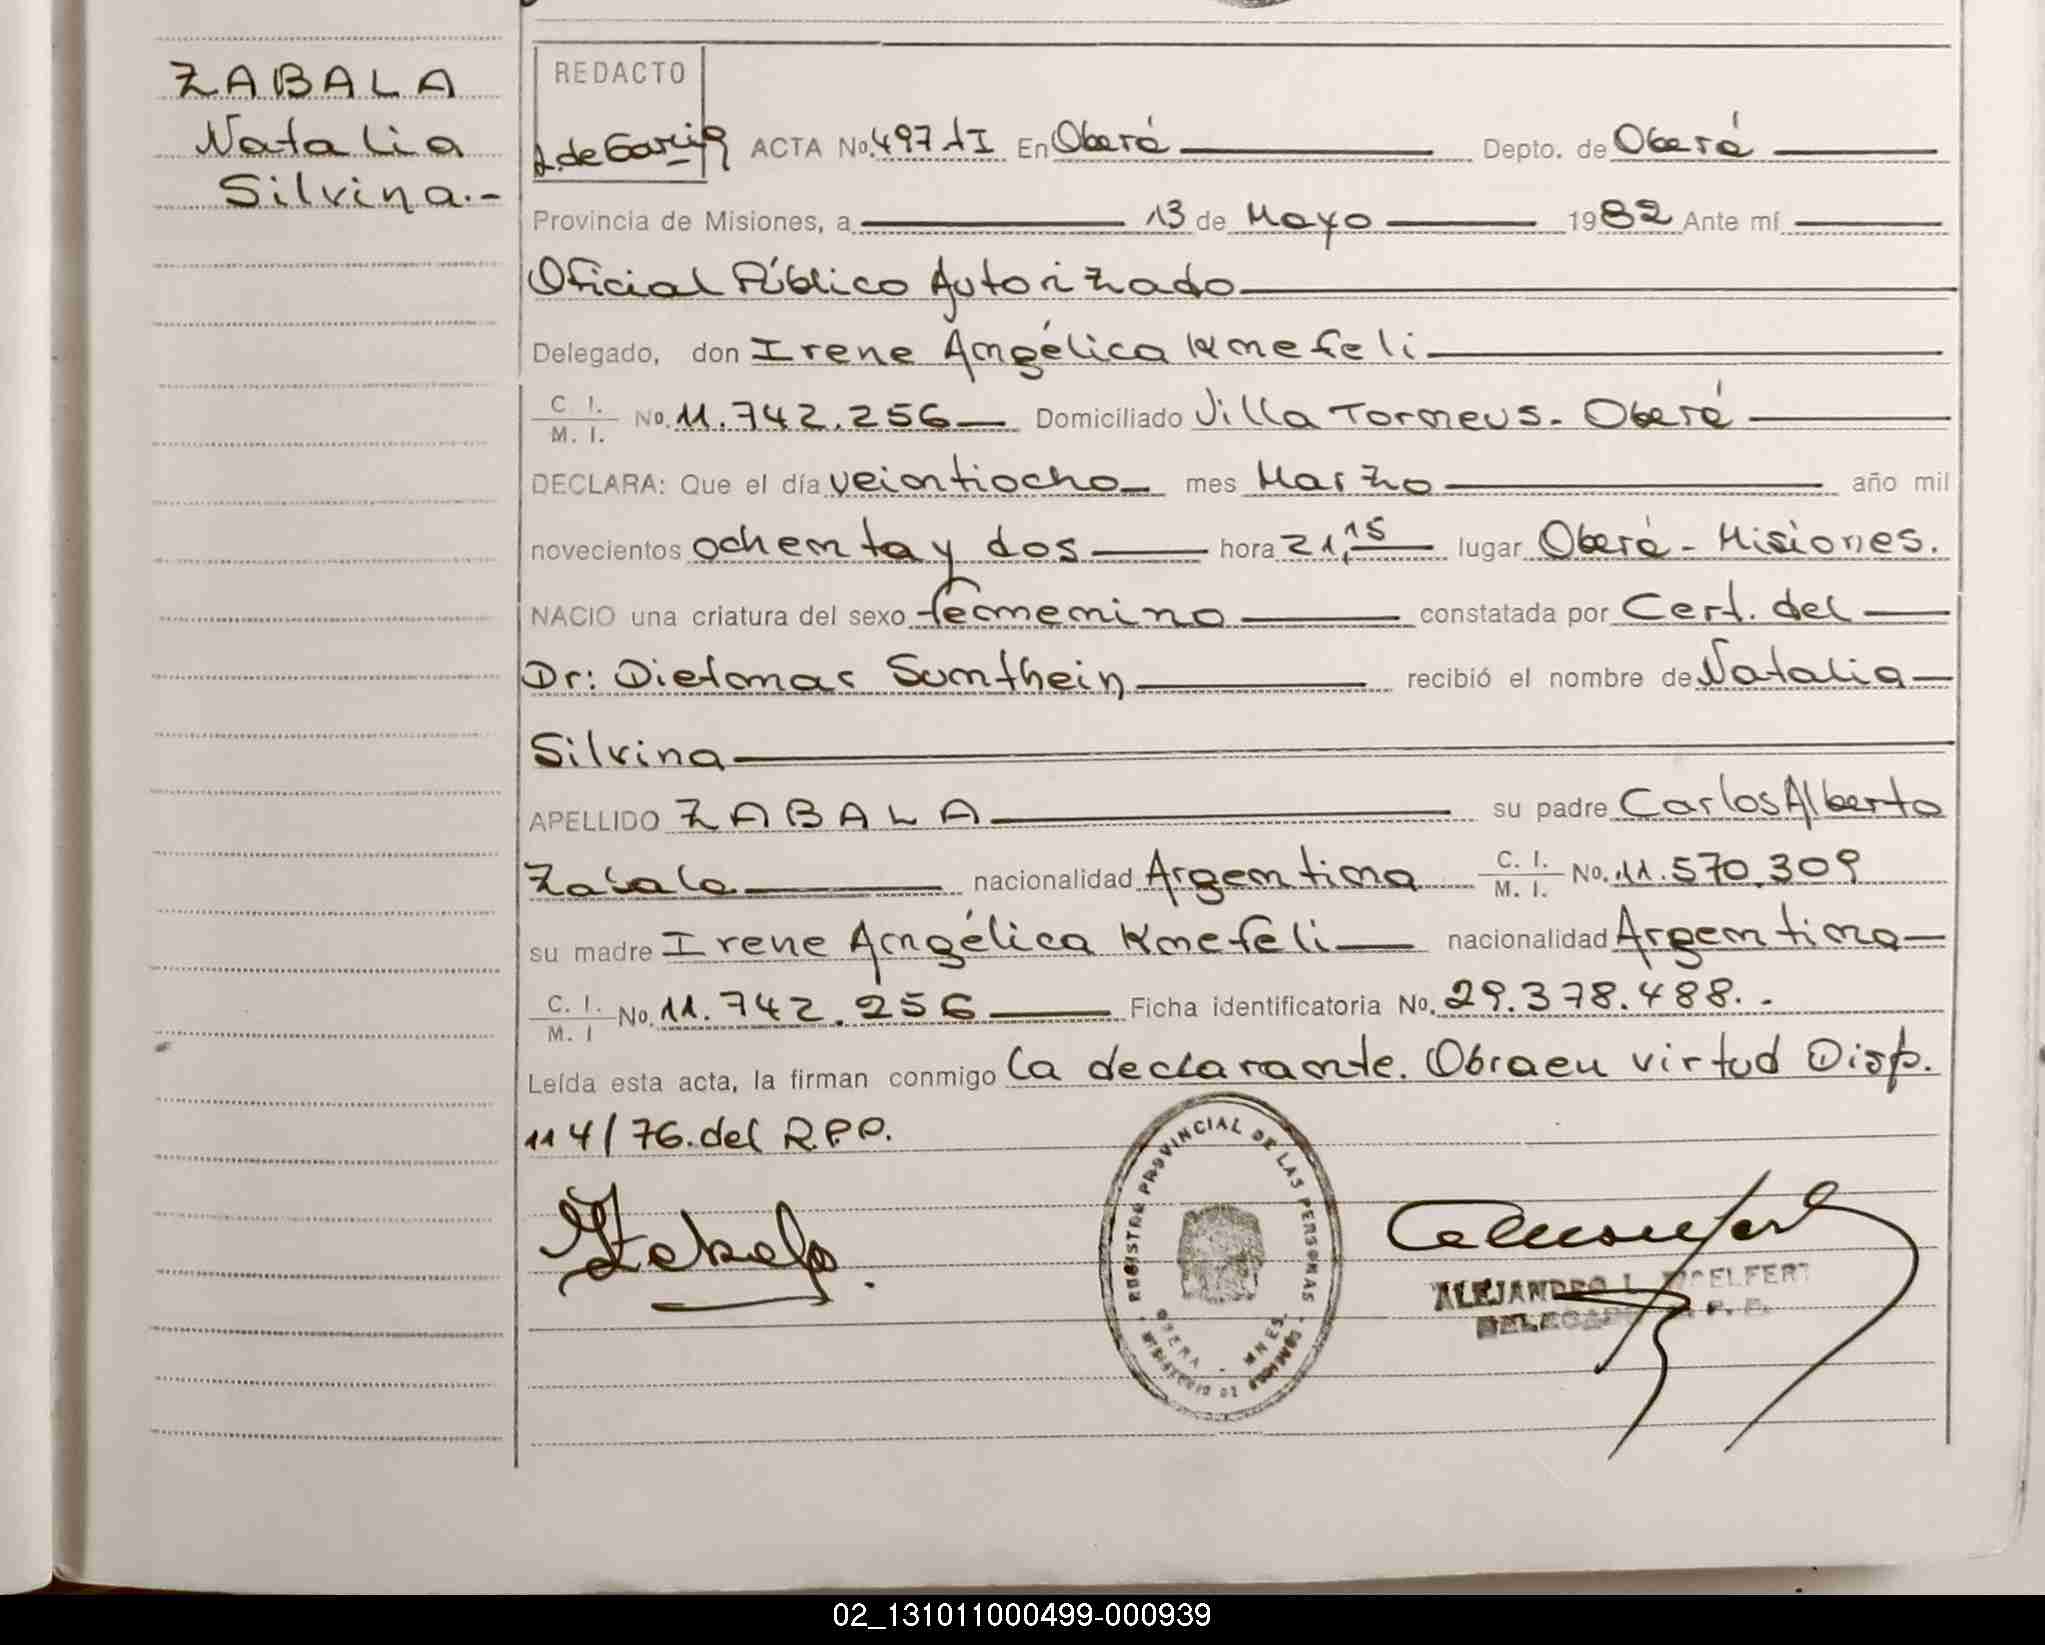 ZABALA
Natalia
Silvina.-
REDACTO
ACTA No. 497 tI En Oberá Depto. de Oberá
Provincia de Misiones, a 13 de Mayo 1982 Ante mí
Oficial Público Autorizado
Delegado, don Irene Angélica Knefeli
C. I. / M. I. No. 11.742.256 Domiciliado Villa Torneus. Oberá
DECLARA: Que el día veintiocho mes Marzo año mil
novecientos ochenta y dos hora 21,15 lugar Oberá - Misiones.
NACIO una criatura del sexo femenino constatada por Cert. del
Dr: Dietmar Sumthein recibió el nombre de Natalia
Silvina
APELLIDO ZABALA su padre Carlos Alberto
Zabala nacionalidad Argentina C. I. / M. I. No. 11.570.309
su madre Irene Angélica Knefeli nacionalidad Argentina
C. I. / M. I No. 11.742.256 Ficha identificatoria No. 29.378.488.-
Leída esta acta, la firman conmigo la declarante. Obra en virtud Disp.
114/76. del R.P.P.
REGISTRO PROVINCIAL DE LAS PERSONAS
OBERA - MNES.
ALEJANDRO L.
02_131011000499-000939